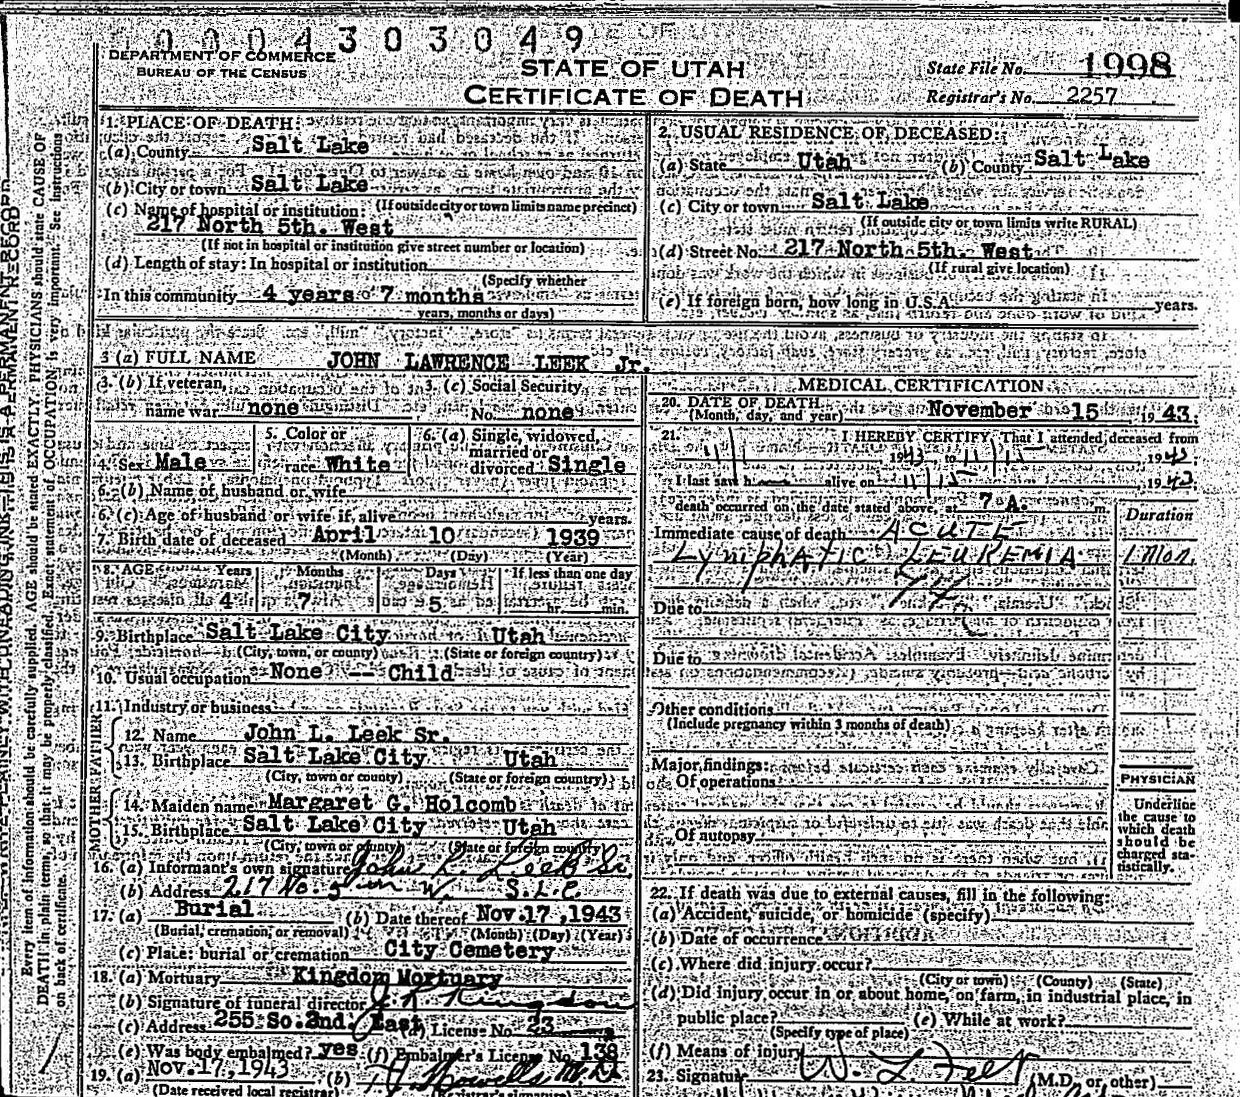 0004303049
DEPARTMENT OF COMMERCE
BUREAU OF THE CENSUS
STATE OF UTAH
CERTIFICATE OF DEATH
State File No. 1998
Registrar's No. 2257
1. PLACE OF DEATH:
(a) County Salt Lake
(b) City or town Salt Lake
(If outside city or town limits name precinct)
(c) Name of hospital or institution:
217 North 5th. West
(If not in hospital or institution give street number or location)
(d) Length of stay: In hospital or institution
(Specify whether
In this community 4 years 7 months
years, months or days)
2. USUAL RESIDENCE OF DECEASED:
(a) State Utah (b) County Salt Lake
(c) City or town Salt Lake
(If outside city or town limits write RURAL)
(d) Street No. 217 North 5th. West
(If rural give location)
(e) If foreign born, how long in U.S.A. years.
3 (a) FULL NAME JOHN LAWRENCE LEEK Jr.
3. (b) If veteran, name war none
3. (c) Social Security No. none
4. Sex Male
5. Color or race White
6. (a) Single, widowed, married or divorced Single
6. (b) Name of husband or wife
6. (c) Age of husband or wife if, alive years.
7. Birth date of deceased April 10 1939
(Month) (Day) (Year)
8. AGE Years Months Days If less than one day
4 7 5 hr. min.
9. Birthplace Salt Lake City Utah
(City, town, or county) (State or foreign country)
10. Usual occupation None -- Child
11. Industry or business
FATHER
12. Name John L. Leek Sr.
13. Birthplace Salt Lake City Utah
(City, town or county) (State or foreign country)
MOTHER
14. Maiden name Margaret G. Holcomb
15. Birthplace Salt Lake City Utah
(City, town or county) (State or foreign country)
16. (a) Informant's own signature John L Leek Sr
(b) Address 217 No. 5 W. S.L.C.
17. (a) Burial (b) Date thereof Nov.17,1943
(Burial, cremation, or removal) (Month) (Day) (Year)
(c) Place: burial or cremation City Cemetery
18. (a) Mortuary Kingdom Mortuary
(b) Signature of funeral director
(c) Address 255 So.2nd. East License No. 23
(e) Was body embalmed? yes (f) Embalmer's License No. 138
19. (a) Nov.17,1943 (b)
(Date received local registrar) (Registrar's signature)
MEDICAL CERTIFICATION
20. DATE OF DEATH
(Month, day, and year) November 15 1943.
21. I HEREBY CERTIFY, That I attended deceased from
1943 to 11/15 1943
I last saw h alive on 11/15 1943
death occurred on the date stated above, at 7 A. m.
Duration
Immediate cause of death ACUTE
LYMPHATIC LEUKEMIA 1 Mon.
Due to
Due to
Other conditions
(Include pregnancy within 3 months of death)
Major findings:
Of operations
Of autopsy
PHYSICIAN
Underline
the cause to
which death
should be
charged sta-
tistically.
22. If death was due to external causes, fill in the following:
(a) Accident, suicide, or homicide (specify)
(b) Date of occurrence
(c) Where did injury occur?
(City or town) (County) (State)
(d) Did injury occur in or about home, on farm, in industrial place, in
public place? (e) While at work?
(Specify type of place)
(f) Means of injury
23. Signature (M.D. or other)
Every item of information should be carefully supplied. AGE should be stated EXACTLY. PHYSICIANS should state CAUSE OF
DEATH in plain terms, so that it may be properly classified. Exact statement of OCCUPATION is very important. See instructions
on back of certificate.